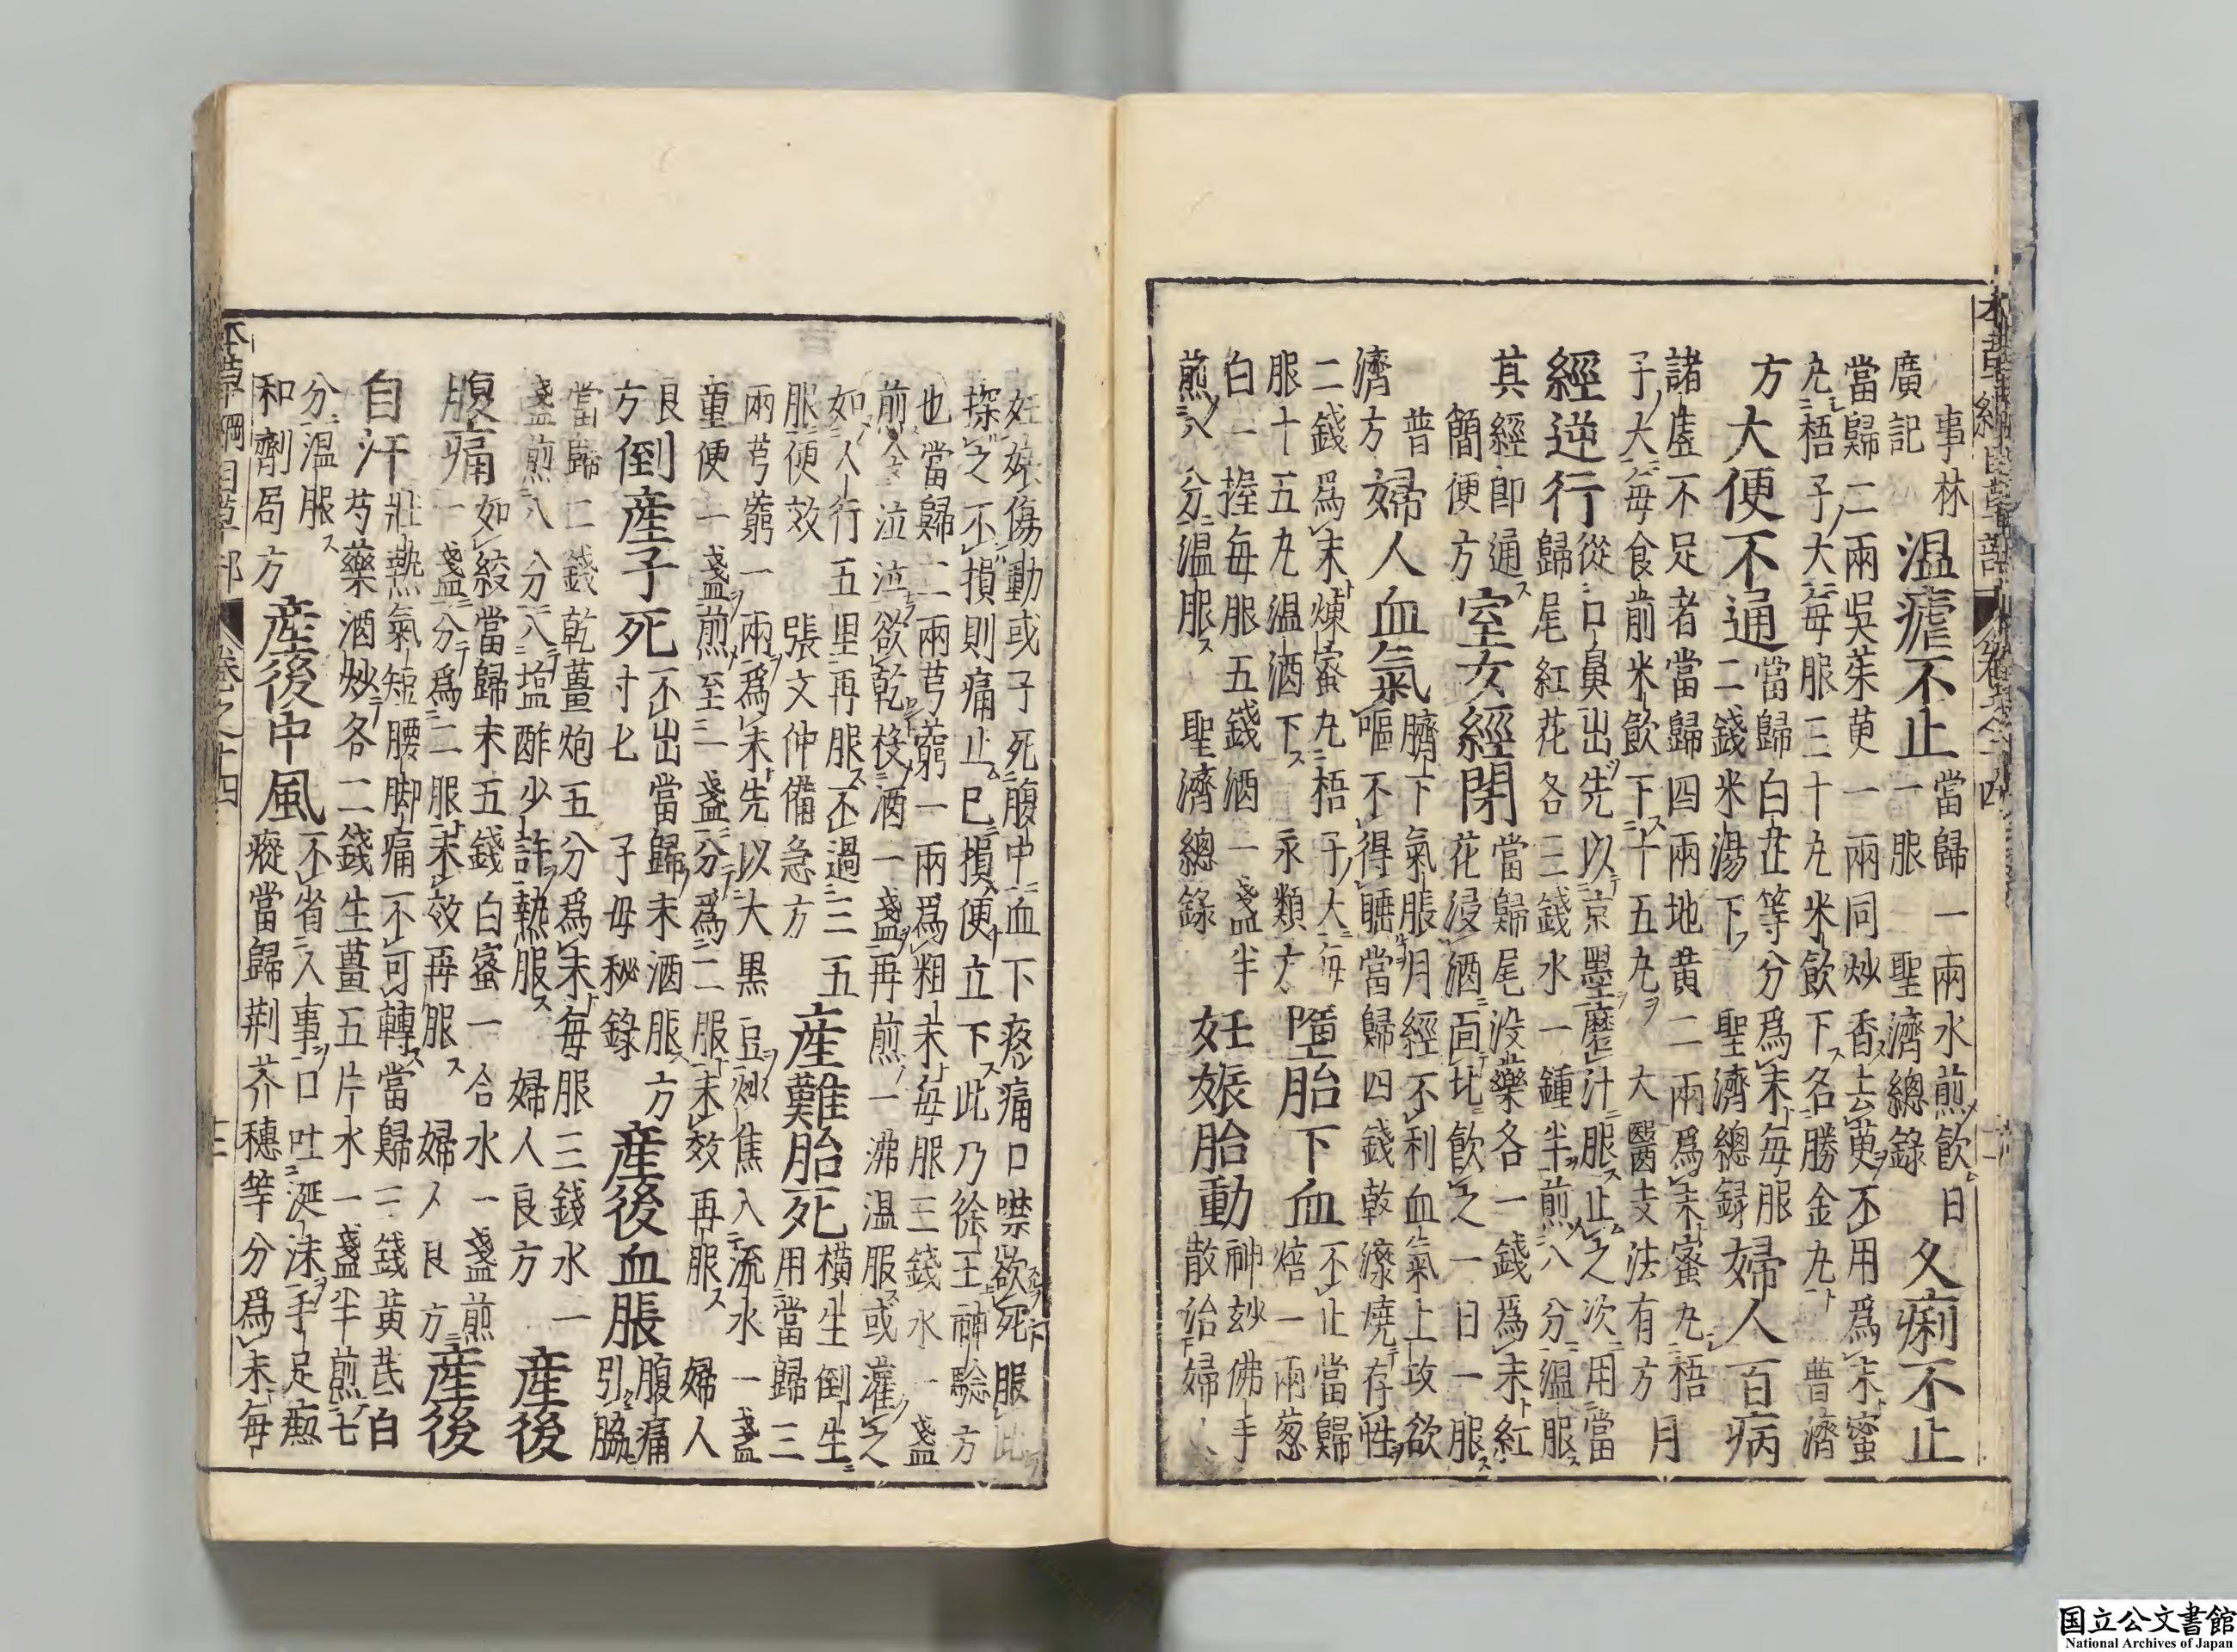 事林廣記 溫瘧不止 當歸一兩水煎飲日一服 聖濟總錄 久痢不止
當歸二兩吳茱萸一兩同炒香去萸不用爲末蜜
丸梧子大每服三十丸米飲下名勝金丸 普濟
方 大便不通 當歸白芷等分爲末每服二錢米湯下 聖濟總錄 婦人百病
諸虛不足者當歸四兩地黃二兩爲末蜜丸梧
子大每食前米飲下十五丸 大醫支法有方 月
經逆行 從口鼻出先以京墨磨汁服止之次用當歸尾紅花各三錢水一鍾半煎八分溫服
其經即通 簡便方 室女經閉 當歸尾沒藥各一錢爲末紅花浸酒面北飲之一日一服
普濟方 婦人血氣 臍下氣脹月經不利血氣上攻欲嘔不得睡當歸四錢乾漆燒存性
二錢爲末煉蜜丸梧子大每服十五丸溫酒下 永類方 墮胎下血 不止當歸焙一兩葱
白一握每服五錢酒一盞半煎八分溫服 聖濟總錄 妊娠胎動 神玅佛手散治婦人
妊娠傷動或子死腹中血下疼痛口噤欲死服此
探之不損則痛止已損便立下此乃徐王神驗方
也當歸二兩芎藭一兩爲粗末每服三錢水一盞
煎令泣泣欲乾投酒一盞再煎一沸溫服或灌之
如人行五里再服不過三五服便效 張文仲備急方 産難胎死 橫生倒生用當歸三
兩芎藭一兩爲末先以大黑豆炒焦入流水一盞
童便一盞煎至一盞分爲二服未效再服 婦人
良方 倒産子死 不出當歸末酒服方寸匕 子母秘錄 産後血脹 腹痛引脇
當歸二錢乾薑炮五分爲末每服三錢水一
盞煎八分入塩酢少許熱服 婦人良方 産後
腹痛 如絞當歸末五錢白蜜一合水一盞煎一盞分爲二服未效再服 婦人良方 産後
自汗 壯熱氣短腰脚痛不可轉當歸三錢黃芪白芍藥酒炒各二錢生薑五片水一盞半煎七
分溫服 和劑局方 産後中風 不省人事口吐涎沫手足瘛瘲當歸荊芥穗等分爲末每
本草綱目草部 卷之十四
国立公文書館
National Archives of Japan